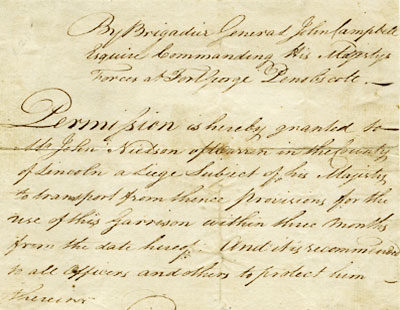 By Brigadier General John Campbell
Esquire Commanding His Majestys
Forces at Fort George Penobscote.
Permission is hereby granted to
Mr John Nielson of Warren in the County
of Lincoln a Liege Subject of his Majesty
to transport from thence provisions for the
use of this Garrison within three Months
from the date hereof. And it is recommended
to all Officers and others to protect him
therein